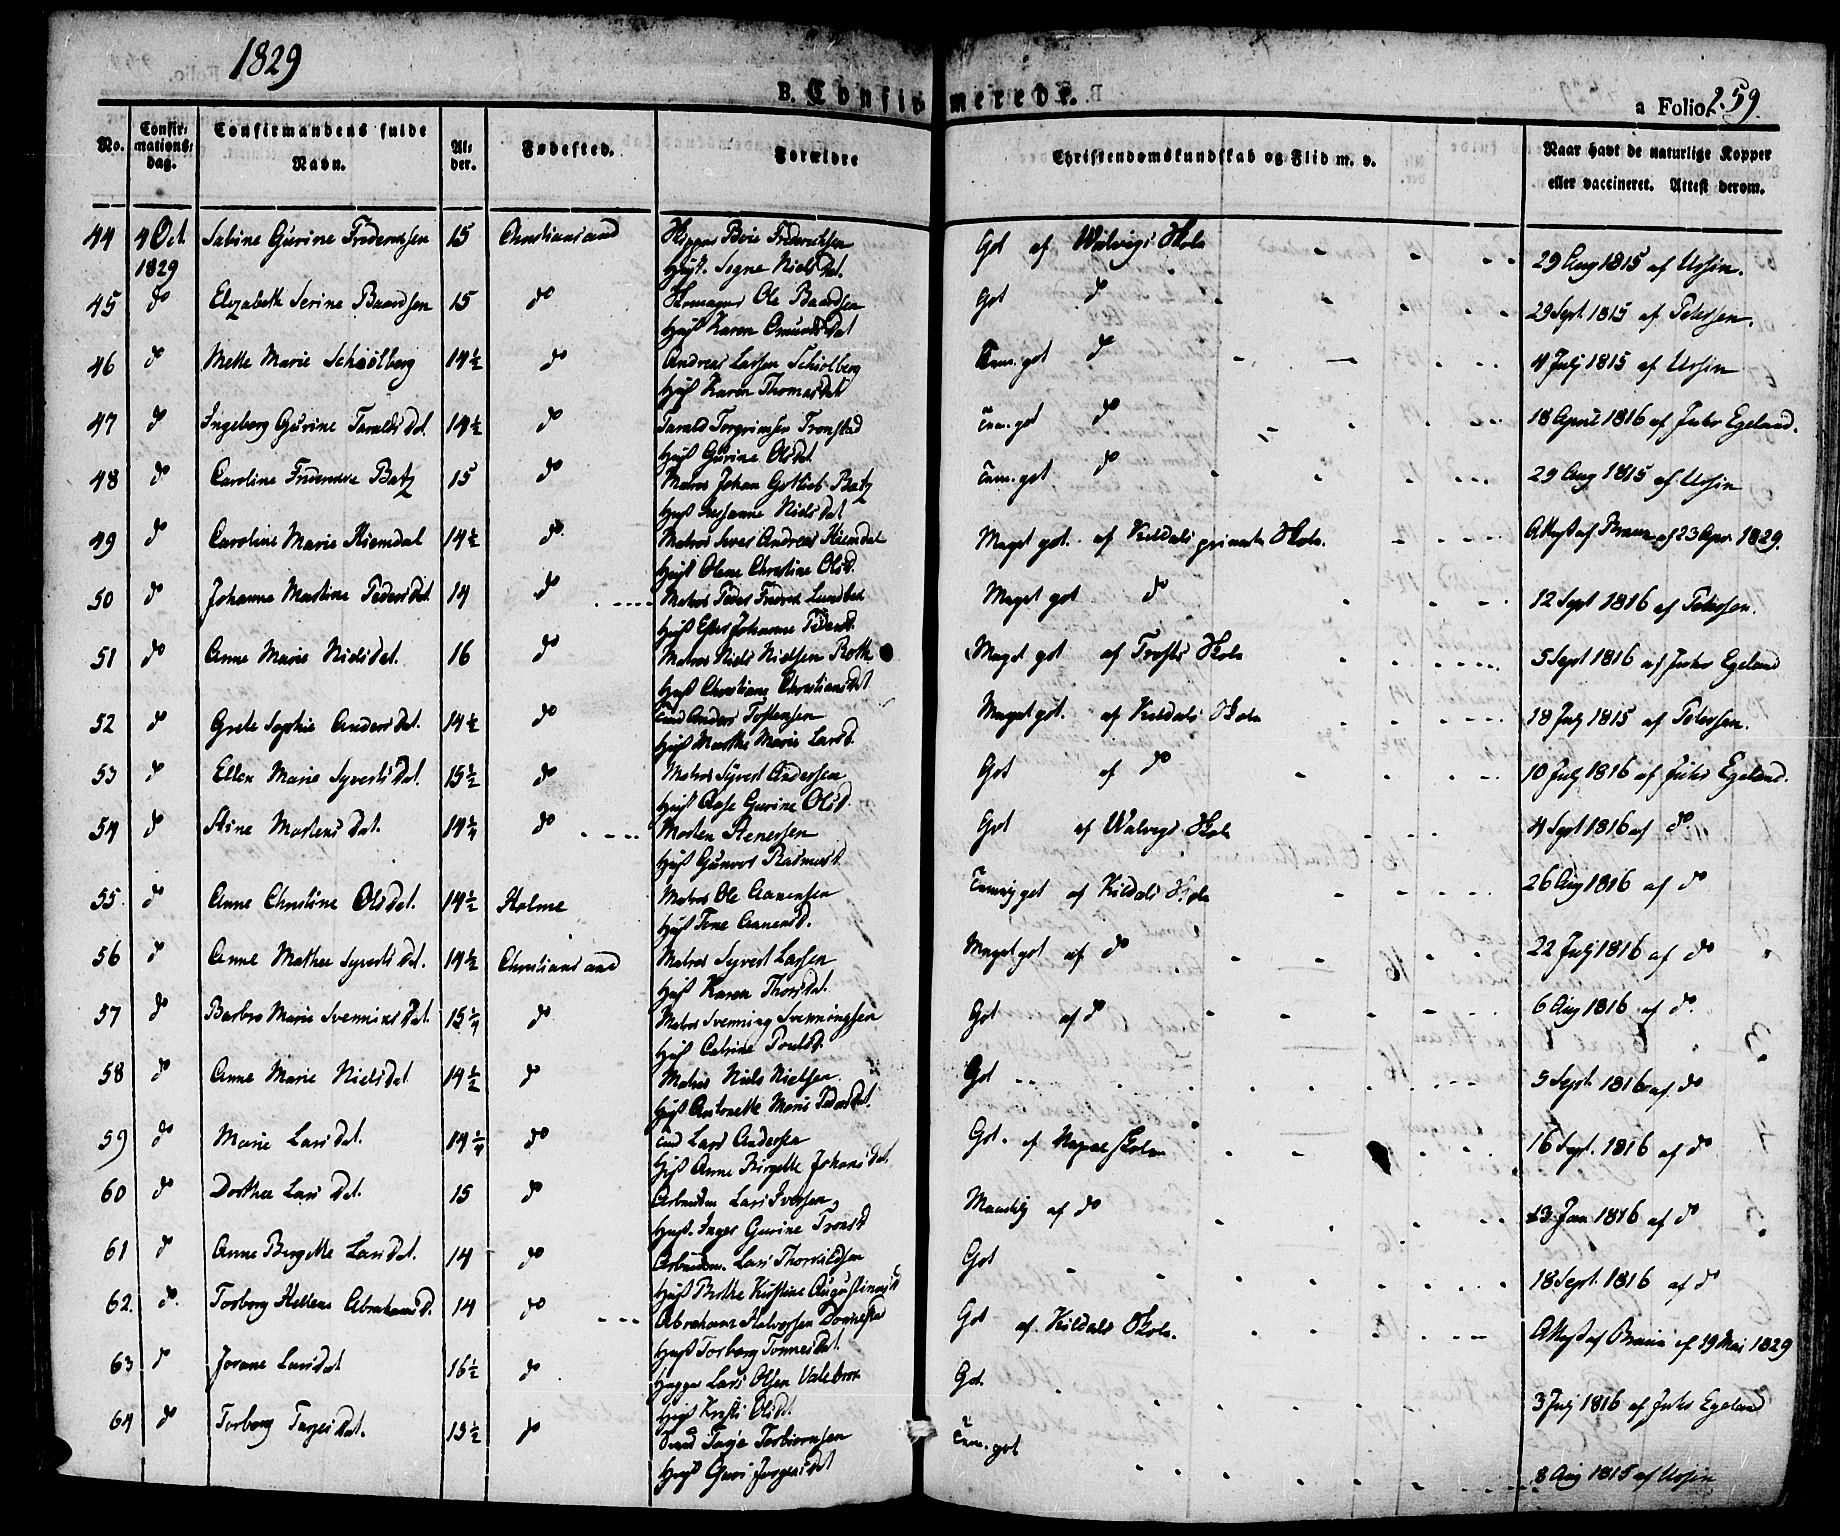 1829
B. Confirmerede.
a Folio 259.
No. Confirmations: dag. Confirmandens fulde Navn. Al: der. Fødested. Forældre Christendomskundskab og Flid m. v. Naar havt de naturlige Kopper eller vaccineret. Attest derom.
44 4 Oct 1829 Sabine Gurine Fredericksen 15 Christiansand Boie Fredericksen Got af Walvigs Skole 29 Aug 1815 af Ursin.
Hust. Signe Niels Dat.
45 do Elizabeth Serine Baardsen 15 do Ole Baardsen Got do 29 Sept 1815 af Petersen.
Hust Karen Omunds Dat
46 do Mette Marie Schiølberg 14½ do Andreas Larsen Schiølberg Tem. got do 4 July 1815 af Ursin
Hust Karen Thomas Dat
47 do Ingeborg Gurine Taralds Dat. 14½ do Tarald Torgrimsen Tronstad Tem. got do 18 April 1816 af Juhr Egeland.
Hust Gurine Ols Dat
48 do Caroline Batz 15 do Matros Johan Gotlieb Batz Tem. got do 29 Aug 1815 af Ursin
Hust Susanne Niels Dat
49 do Caroline Marie Kiemdal 14½ do Matros Andreas Kiemdal Meget got. af Kildals private Skole. Attest af 23 Apr. 1829.
Hust Olene Christine Ols D.
50 do Johanne Martine Peders Dat. 14 do Matros Peder Meget got do 12 Sept 1816 af Petersen.
Hust Johanne Peders D.
51 do Anne Marie Niels Dat. 16 do Matros Niels Nielsen Roth Meget got af Trosts Skole 5 Sept 1816 af Juhr Egeland
Hust Christiane Christians Dat
52 do Grete Sophie Anders Dat. 14½ do Anders Tostensen Meget got. af Kildals Skole 18 July 1815 af Petersen.
Hust Marthe Marie Lars D.
53 do Ellen Marie Syverts Dat. 15½ do Matros Syvert Andersen Got af do 10 July 1816 af Juhr Egeland.
Hust Aase Gurine Ols D.
54 do Stine Mortens Dat. 14¼ do Morten Stenersen Got af Walvigs Skole 4 Sept 1816 af do
Hust Gunvor Rasmus D.
55 do Anne Christine Ols Dat. 14½ Holme Matros Ole Aanensen Temig got af Kildals Skole 26 Aug 1816 af do
Hust Tone Aanens D.
56 do Anne Mathea Syverts Dat. 14½ Christiansand Matros Syvert Larsen Meget got af do 22 July 1816 af do
Hust Karen Thors Dat.
57 do Barbro Marie Svennings Dat. 15¼ do Matros Svenning Svenningsen Got af do 6 Aug 1816 af do.
Hust Catrine Pouls D.
58 do Anne Marie Niels Dat 14½ do Matros Niels Nielsen Got 5 Sept. 1816 af do
Hust Antonette Marie Peders Dat.
59 do Marie Lars Dat. 14¼ do Lars Andersen Got. af Skole 16 Sept. 1816 af do
Hust Anne Birgitte Johans Dat.
60 do Dorthea Lars Dat. 15 do Arbeidsm Lars Iversen Maadelig af do 13 Jan 1816 af do
Hust. Inger Gurine Trons D
61 do Anne Bergitte Lars Dat. 14 do Arbeidsm. Lars Thorvildsen Got 18 Sept. 1816 af do
Hust Birthe Kirstine Augustinus D
62. do. Torborg Hellene Abrahams D. 14 do Abraham Halvorsen Got af Kildals Skole. Attest af 19 Mai 1829
Hust Torborg Tønnes Dat.
63 do Jorane Lars Dat 16½ do Lars Olsen Valebrok Got. 3 July 1816 af Juhr Egeland
Hust Kirsti Ols Dat.
64 do Torborg Tarjes Dat. 15½ do Tarje Torbiørnsen Tem. got 8 Aug 1815 af Ursin
Hust Guri Jørgens Dat